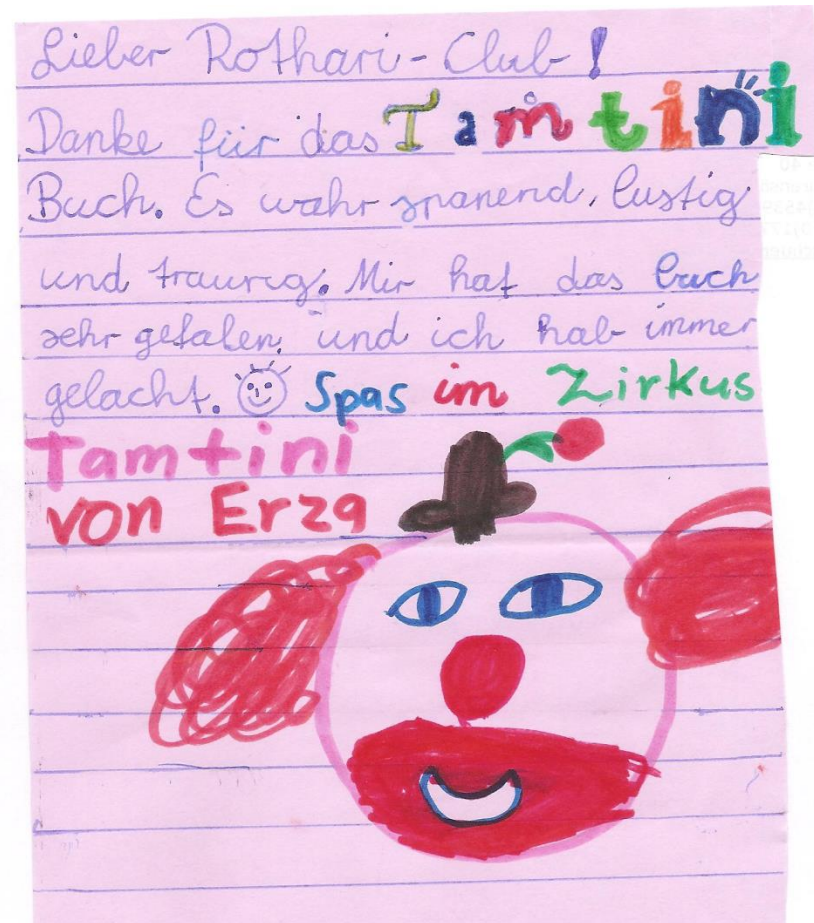 Lieber Rothari-Club!
Danke für das Tamtini
Buch. Es wahr spanend, lustig
und traurig. Mir hat das buch
sehr gefalen, und ich hab immer
gelacht. Spas im Zirkus
Tamtini
von Erza